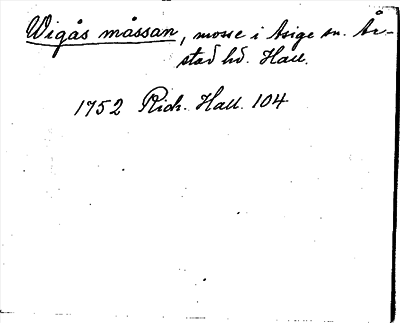 Wigås måssan, mosse i Asige sn. År-
stad hd. Hall.
1752 Rich. Hall. 104